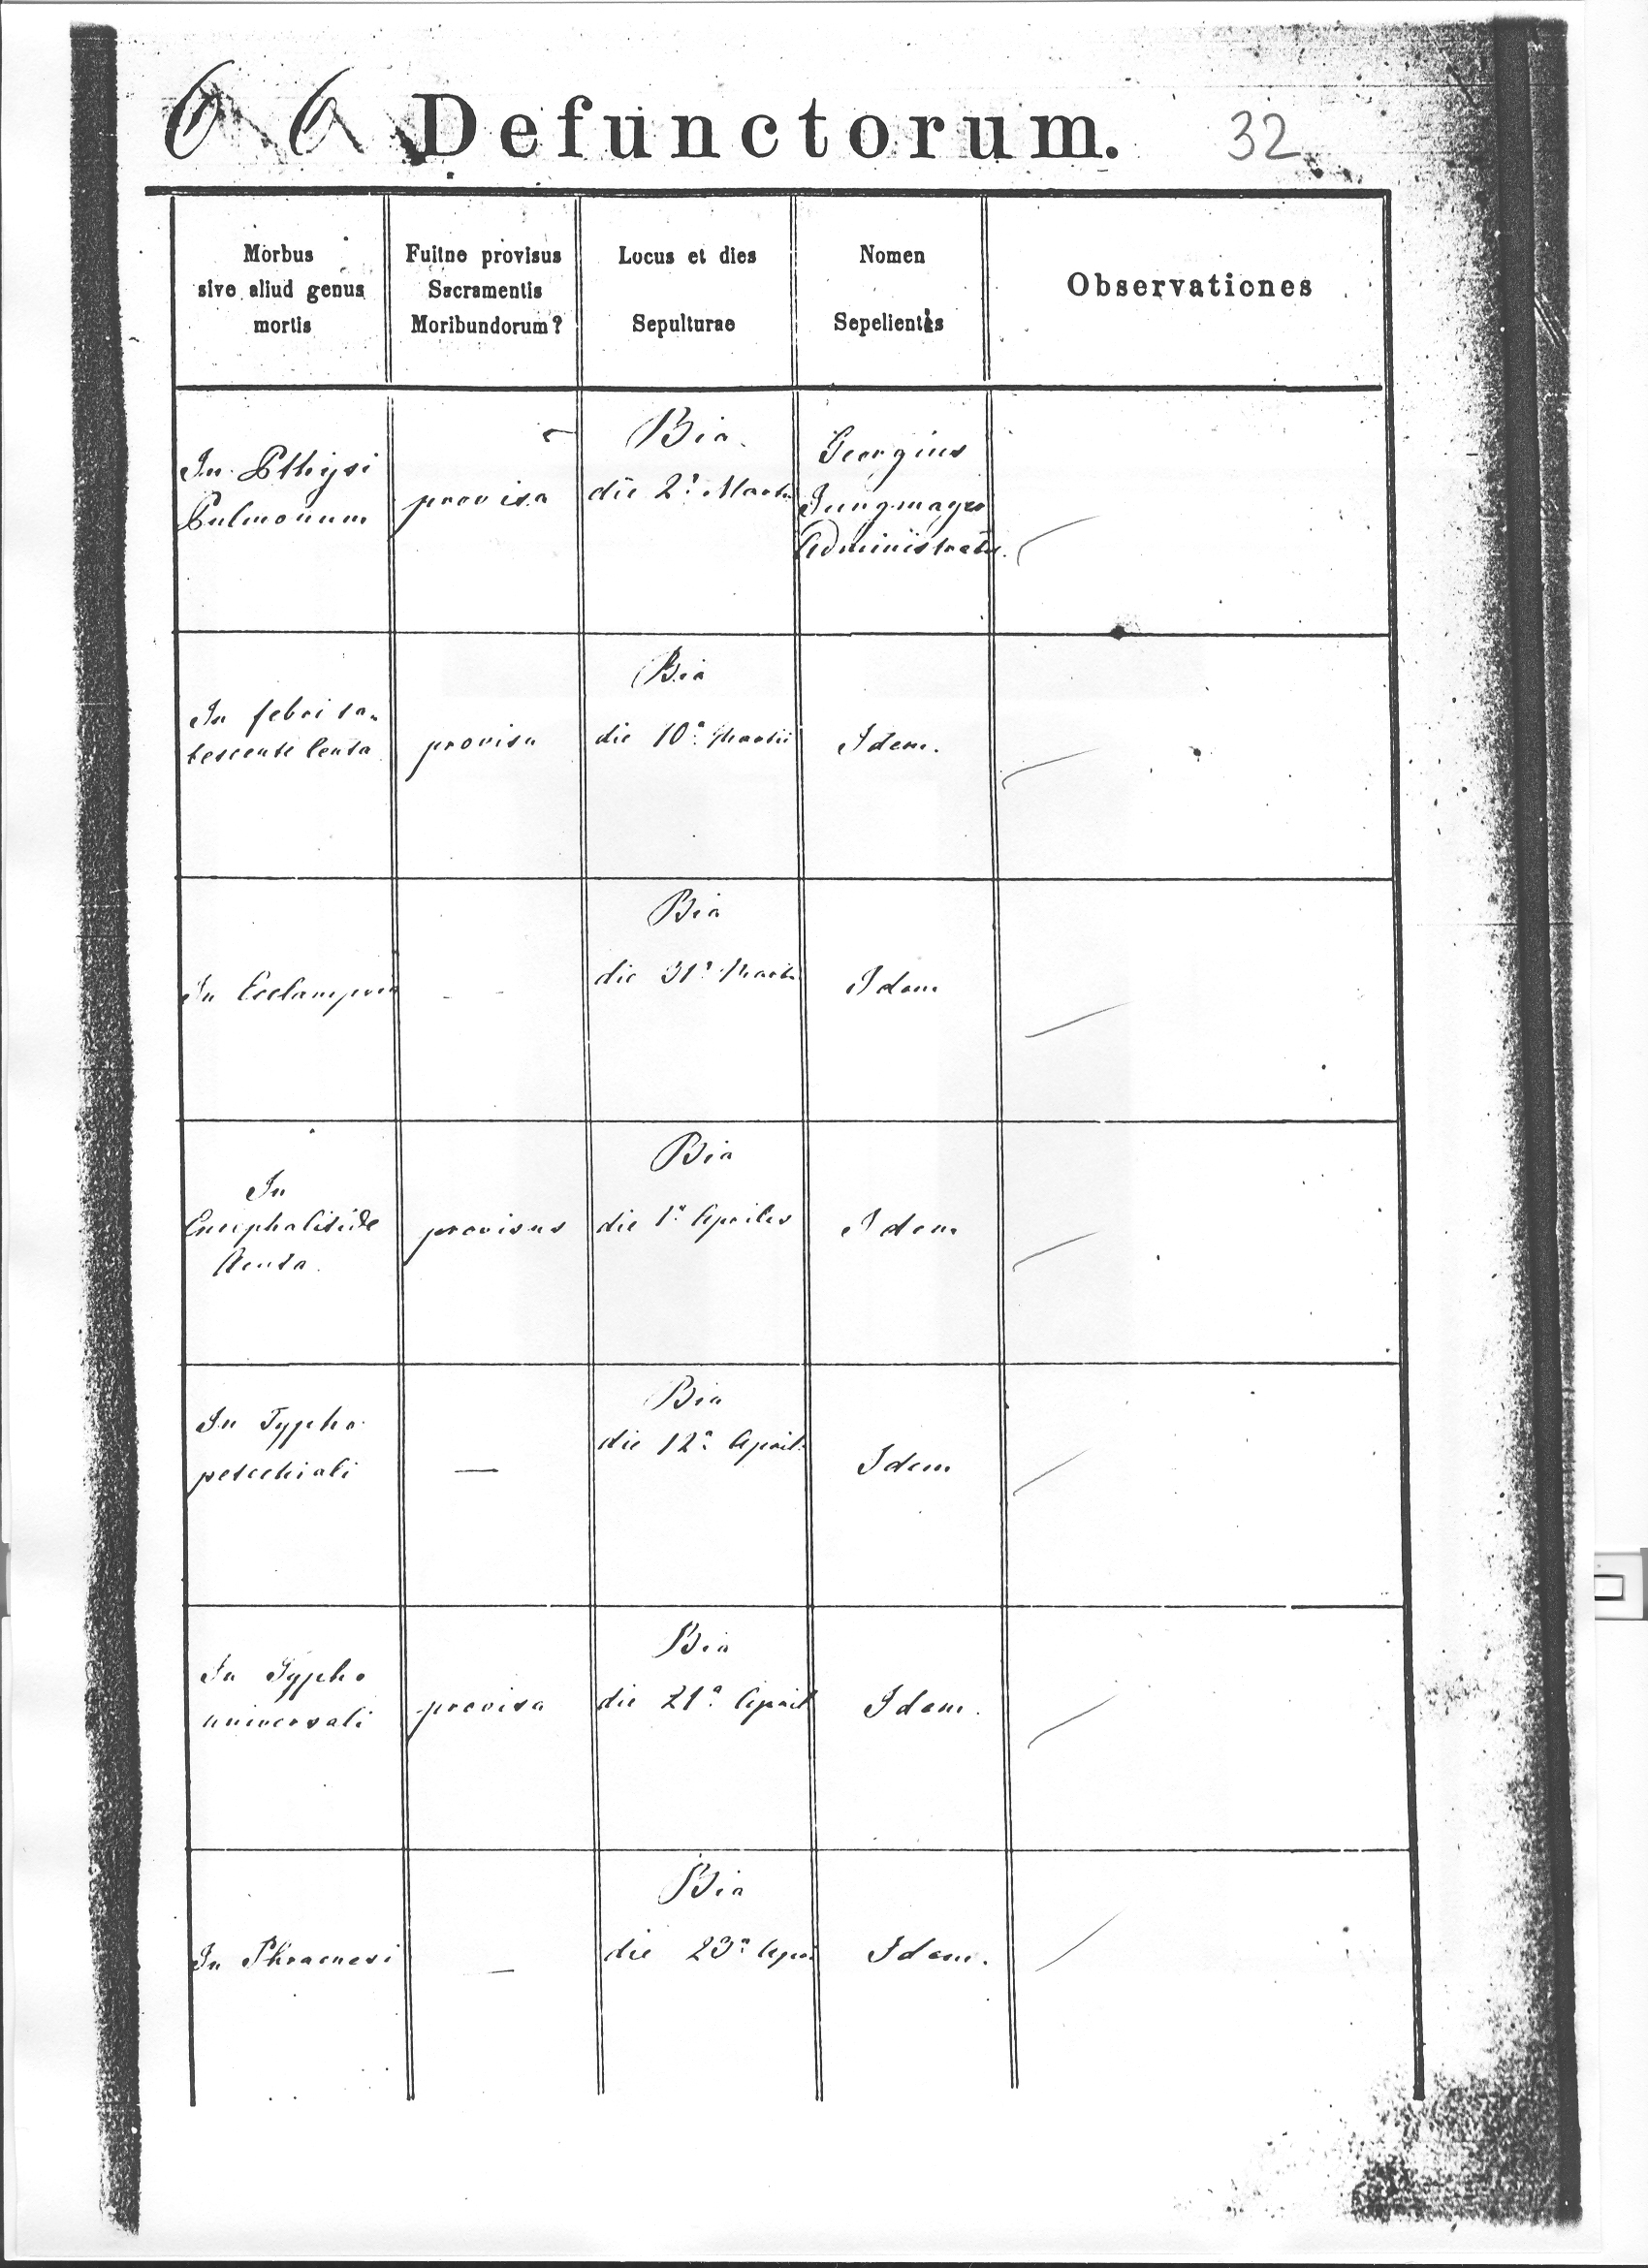 66 Defunctorum. 32
Morbus
sive aliud genus
mortis
Fuitne provisus
Sacramentis
Moribundorum?
Locus et dies
Sepulturae
Nomen
Sepelientis
Observationes
In Pthysi
Pulmonum
provisa
Bia.
die 2ª Martii
Georgius
Jungmayer
Administrator.
In febri ta-
bescente lenta
provisa
Bia
die 10ª Martii
Idem.
In Ecclampsia
- -
Bia
die 31ª Martii
Idem
In
Encephalitide
Acuta.
provisus
Bia
die 1ª Aprilis
Idem
In Typho
petechiali
—
Bia
die 12ª April.
Idem
In Typho
universali
provisa
Bia
die 21ª April
Idem.
In Phraenesi
—
Bia
die 23ª Apri
Idem.